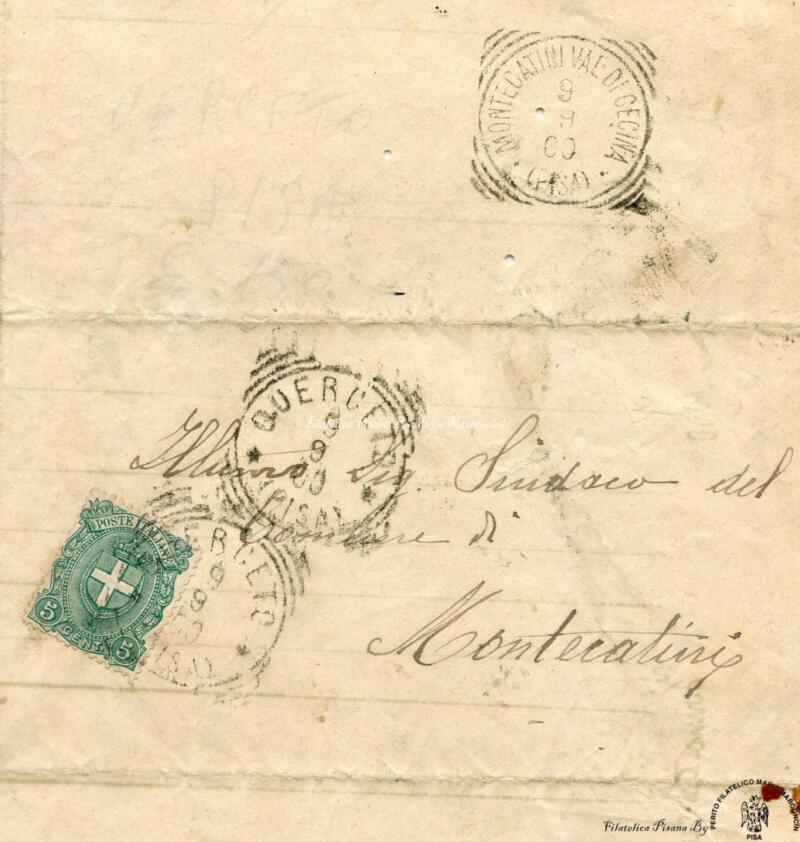 MONTECATINI VAL DI CECINA
9
9
00
(PISA)
QUERCETO
9
9
00
(PISA)
Filatelica Pisana By Mario Marconcini
Illumo Sig. Sindaco del
Comune di
Montecatini
POSTE ITALIANE
5 CENT. 5
QUERCETO
9
9
00
(PISA)
PERITO FILATELICO MARIO MARCONCINI
PISA
Filatelica Pisana By